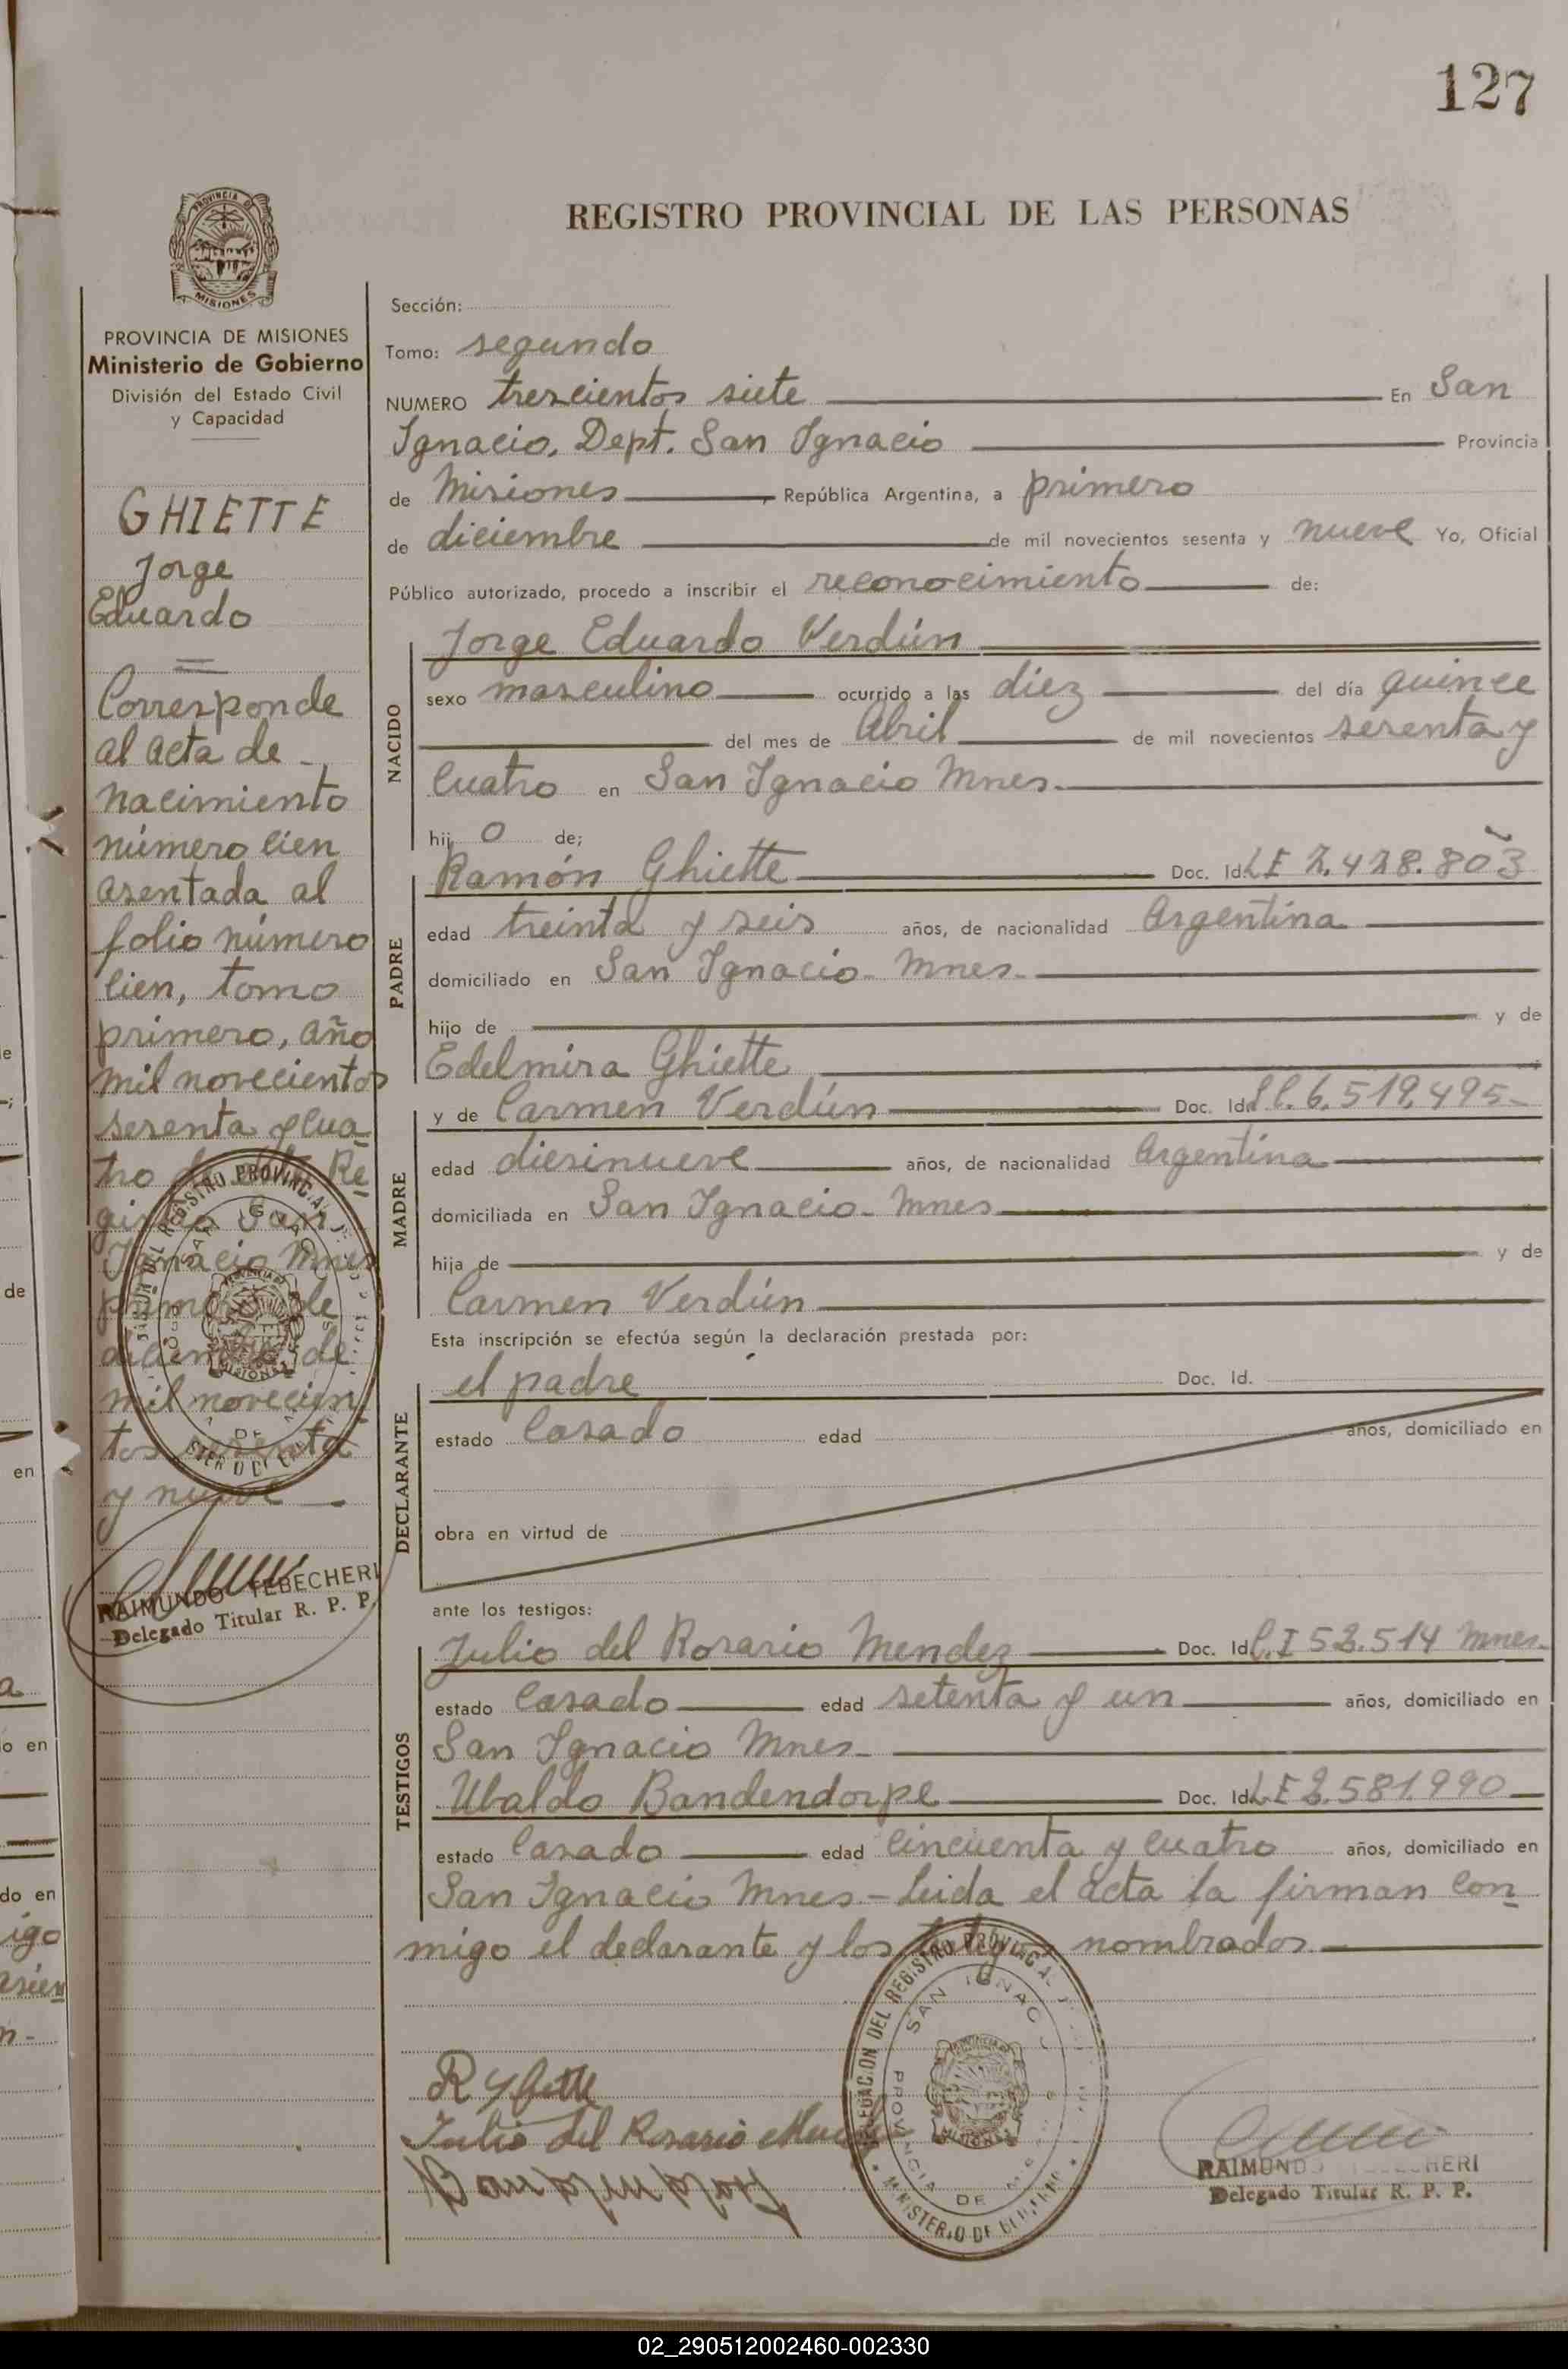 127
REGISTRO PROVINCIAL DE LAS PERSONAS
PROVINCIA DE MISIONES
Ministerio de Gobierno
División del Estado Civil
y Capacidad
GHIETTE
Jorge
Eduardo
Corresponde
al acta de
nacimiento
número cien
asentada al
folio número
cien, tomo
primero, año
mil novecientos
sesenta y cua
tro de este Re
gistro San
Ignacio Mnes
primero de
diciembre de
mil novecien
tos sesenta
y nueve
RAIMUNDO TEBECHERI
Delegado Titular R. P. P.
Sección:
Tomo: segundo
NUMERO trescientos siete En San
Ignacio, Dept. San Ignacio Provincia
de Misiones, República Argentina, a primero
de diciembre de mil novecientos sesenta y nueve Yo, Oficial
Público autorizado, procedo a inscribir el reconocimiento de:
NACIDO
Jorge Eduardo Verdún
sexo masculino ocurrido a las diez del día quince
del mes de Abril de mil novecientos sesenta y
cuatro en San Ignacio Mnes.
hijo de;
PADRE
Ramón Ghiette Doc. Id. LE
edad treinta y seis años, de nacionalidad Argentina
domiciliado en San Ignacio - Mnes.
hijo de y de
Edelmira Ghiette
MADRE
y de Carmen Verdún Doc. Id. 6.519.495
edad diesinueve años, de nacionalidad Argentina
domiciliada en San Ignacio - Mnes
hija de y de
Carmen Verdún
Esta inscripción se efectúa según la declaración prestada por:
DECLARANTE
el padre Doc. Id.
estado Casado edad años, domiciliado en
obra en virtud de
ante los testigos:
TESTIGOS
Julio del Rosario Mendez Doc. Id. C.I 53.514 Mnes.
estado Casado edad setenta y un años, domiciliado en
San Ignacio Mnes
Ubaldo Bandendorpe Doc. Id. LE 2.581.990
estado Casado edad cincuenta y cuatro años, domiciliado en
San Ignacio Mnes - Leida el acta la firman con
migo el declarante y los testigos nombrados
Julio del Rosario
DELEGACION DEL REGISTRO PROVINCIAL
SAN IGNACIO
PROVINCIA DE MISIONES
MINISTERIO DE GOBIERNO
RAIMUNDO TEBECHERI
Delegado Titular R. P. P.
02_290512002460-002330